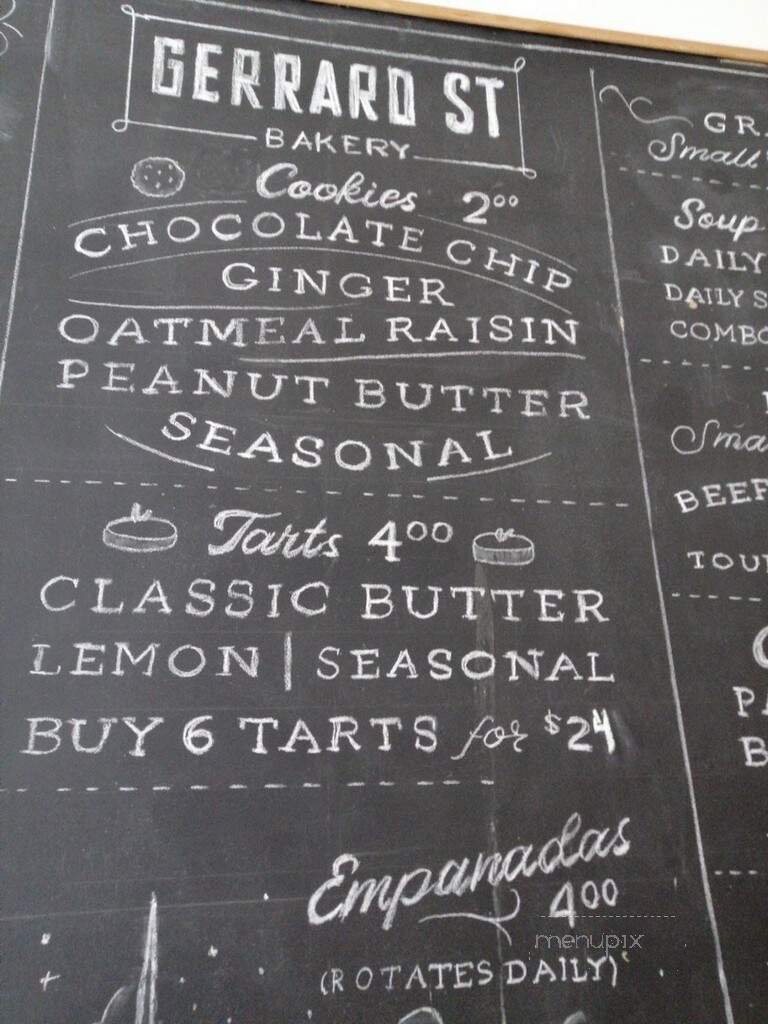 GERRARD ST
BAKERY
Cookies 2⁰⁰
CHOCOLATE CHIP
GINGER
OATMEAL RAISIN
PEANUT BUTTER
SEASONAL
Tarts 4⁰⁰
CLASSIC BUTTER
LEMON | SEASONAL
BUY 6 TARTS for $24
Empanadas
4⁰⁰
(ROTATES DAILY)
menupix
Small
Soup
DAILY
DAILY S
COMBO
BEEF